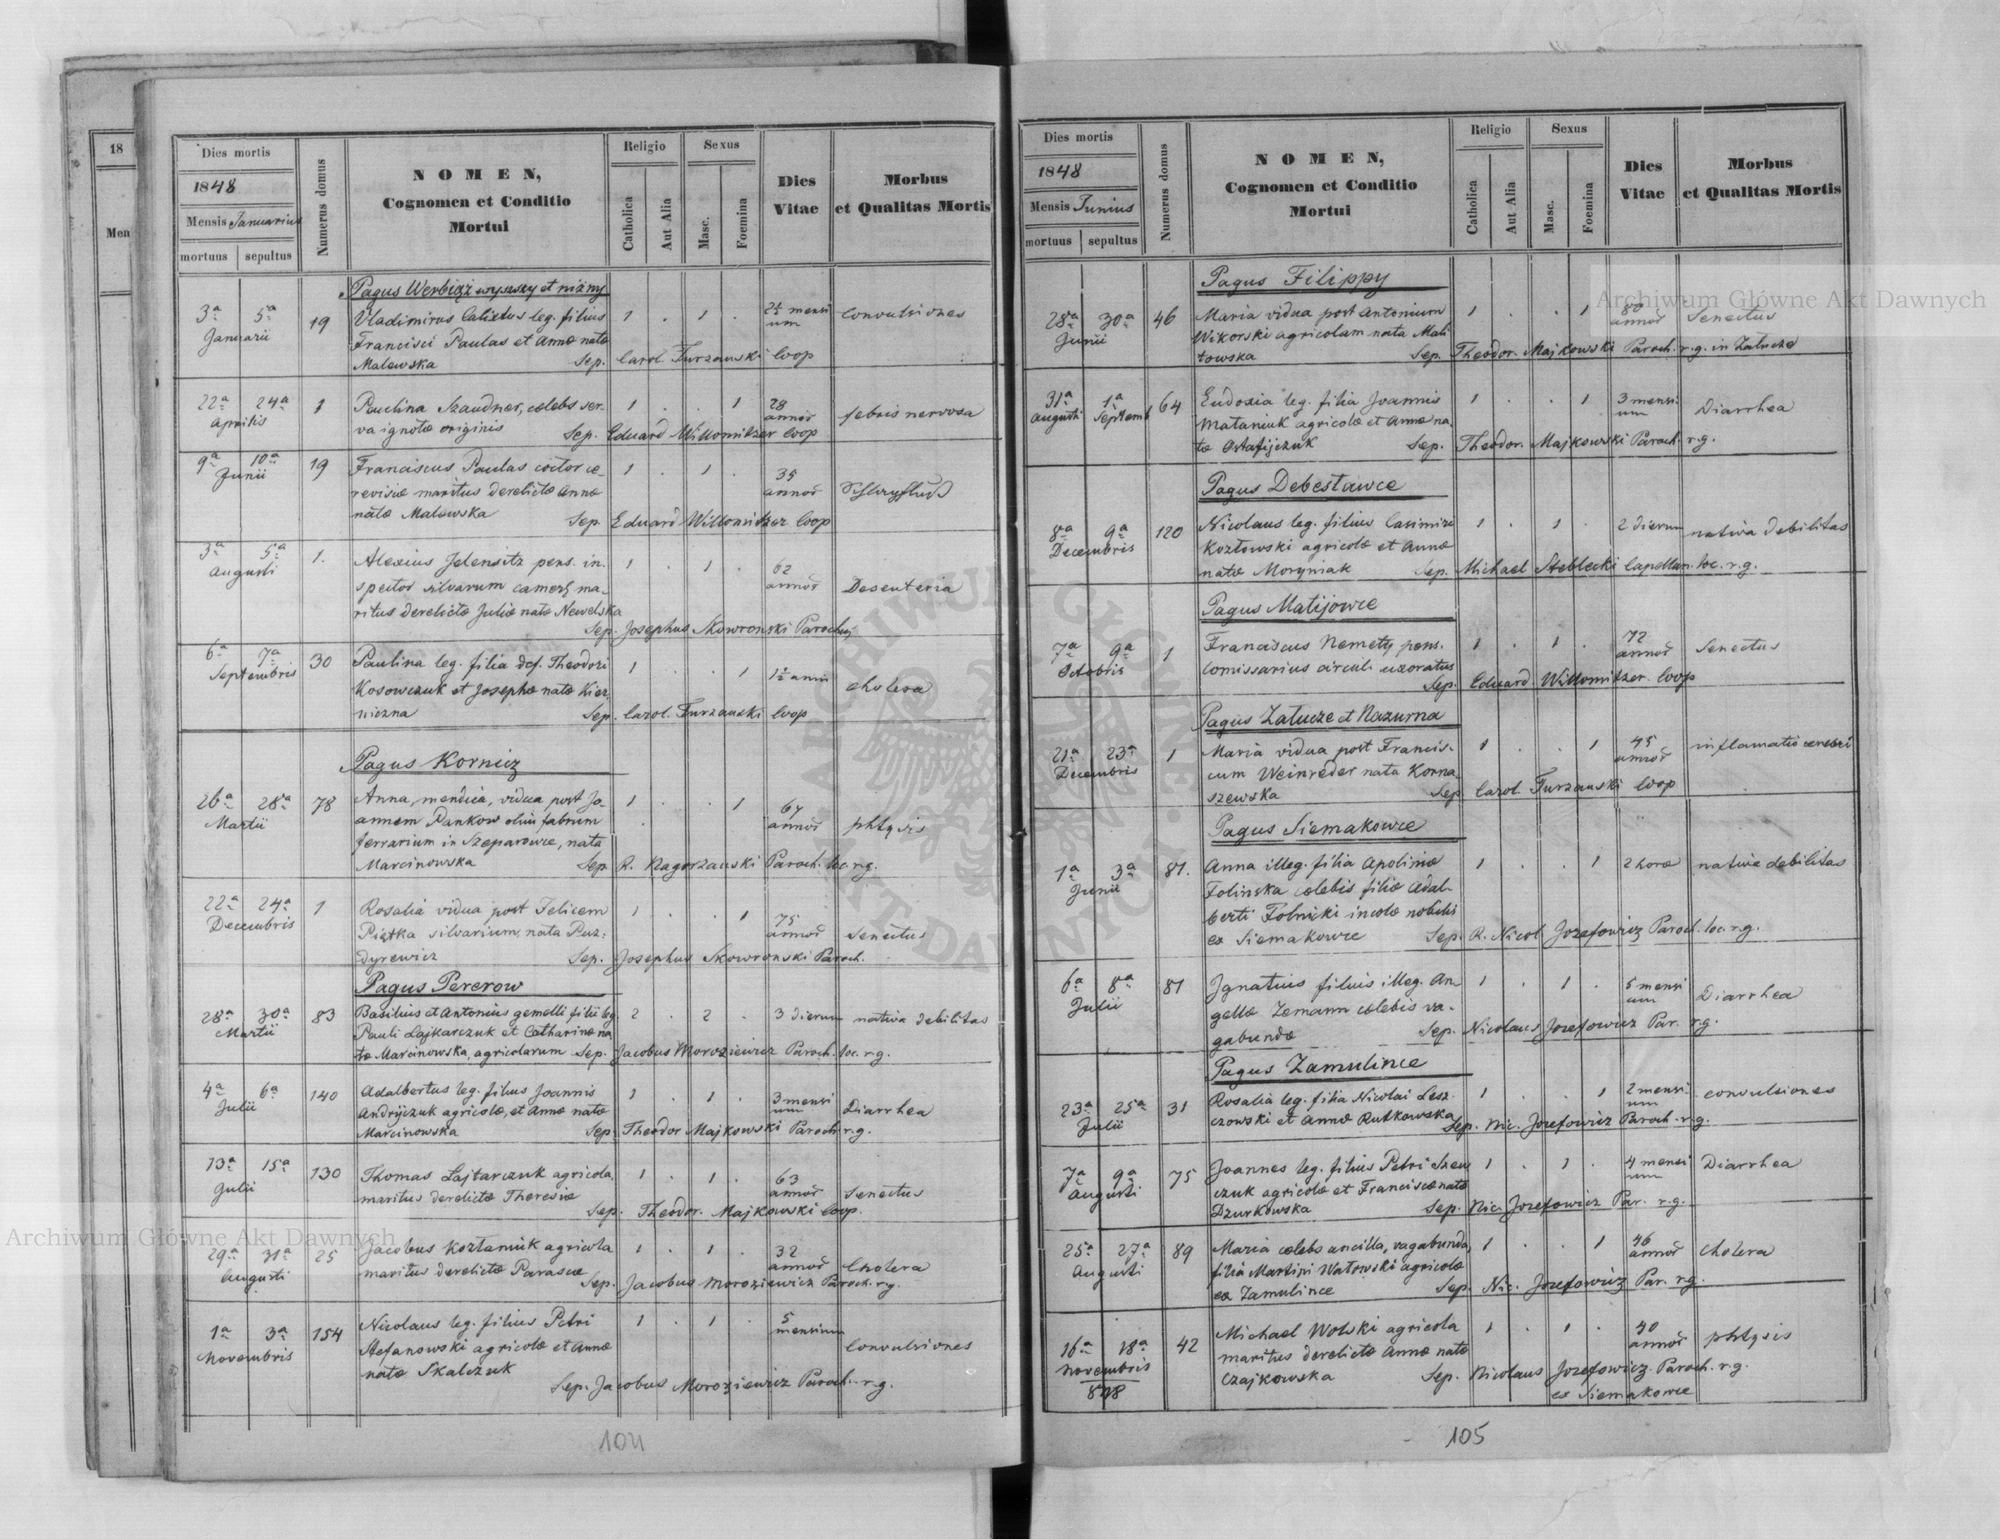 18
Men
Dies mortis
1848
Mensis Januarius
mortuus sepultus
Numerus domus
NOMEN,
Cognomen et Conditio
Mortui
Religio
Catholica
Aut Alia
Sexus
Masc.
Foemina
Dies
Vitae
Morbus
et Qualitas Mortis
Pagus Werbiąż wyszszy et niżny
3a 5a Januarii 19
Vladimirus Calixtus leg. filius 1 . 1 . 2½ mensium convulsiones
Francisci Paulas et Annæ natæ
Malewska Sep. Carol. Turzanski Coop
22a 24a Aprilis 1
Paulina Szaudner, cælebs ser- 1 . . 1 28 annor febris nervosa
va ignotæ originis Sep. Eduard Willomitzer Coop
9a 10a Junii 19
Franciscus Paulas coctor ce- 1 . 1 . 35 annor
revisiæ maritus derelictæ Annæ
natæ Malewska Sep. Eduard Willomitzer Coop
3a 5a Augusti 1.
Alexius Jelensitz pens. in- 1 . 1 . 62 annor Desenteria
spector silvarum camer. ma-
ritus derelictæ Juliæ natæ Newelska
Sep. Josephus Skowronski Parochus
6a 7a Septembris 30
Paulina leg. filia def. Theodori 1 . . 1 1½ anni cholera
Kosowczuk et Josephæ natæ Kier
niczna Sep. Carol. Turzanski Coop
Pagus Kornicz
26a 28a Martii 78
Anna, mendica, vidua post Jo- 1 . . 1 64 annor phtysis
annem Pankow olim fabrum
ferrarium in Szeparowce, nata
Marcinowska Sep. R. Nagorzanski Paroch. loc. r.g.
22a 24a Decembris 1
Rosalia vidua post Felicem 1 . . 1 75 annor Senectus
Piątka silvarium, nata Puz-
dyrewicz Sep. Josephus Skowronski Paroch.
Pagus Pererow
28a 30a Martii 83
Basilius et Antonius gemelli filii leg. 2 . 2 . 3 dierum nativa debilitas
Pauli Lajkarczuk et Catharinæ na
tæ Marcinowska, agricolarum Sep. Jacobus Moroziewicz Paroch. loc. r.g.
4a 6a Julii 140
Adalbertus leg. filius Joannis 1 . 1 . 3 mensium Diarrhea
Andrijczuk agricolæ, et Annæ natæ
Marcinowska Sep. Theodor Majkowski Paroch. r.g.
13a 15a Julii 130
Thomas Lajtarczuk agricola, 1 . 1 . 63 annor Senectus
maritus derelictæ Theresiæ
Sep. Theodor. Majkowski Coop.
29a 31a Augusti 25
Jacobus Koztaniuk agricola 1 . 1 . 32 annor Cholera
maritus derelictæ Parascæ
Sep. Jacobus Moroziewicz Paroch. r.g.
1a 3a Novembris 154
Nicolaus leg. filius Petri 1 . 1 . 5 mensium Convulsiones
Stefanowski agricolæ et Annæ
natæ Skalczuk
Sep. Jacobus Moroziewicz Paroch. r.g.
104
Dies mortis
1848
Mensis Junius
mortuus sepultus
Numerus domus
NOMEN,
Cognomen et Conditio
Mortui
Religio
Catholica
Aut Alia
Sexus
Masc.
Foemina
Dies
Vitae
Morbus
et Qualitas Mortis
Pagus Filippy
28a 30a Junii 46
Maria vidua post Antonium 1 . . 1 80 annor Senectus
Wikorski agricolam nata Mali
towska Sep. Theodor. Majkowski Paroch. r.g. in Załucze
31a Augusti 1a Septemb 64
Eudoxia leg. filia Joannis 1 . . 1 3 mensium Diarrhea
Mataniuk agricolæ et Annæ na
tæ Ostafijczuk Sep. Theodor. Majkowski Paroch. r.g.
Pagus Debesławce
8a 9a Decembris 120
Nicolaus leg. filius Casimiri 1 . 1 . 2 dierum nativa debilitas
Kozłowski agricolæ et Annæ
natæ Moryniak Sep. Michael Steblecki Capellan. loc. r.g.
Pagus Matijowce
7a 9a Octobris 1
Franciscus Nemethy pens. 1 . 1 . 72 annor Senectus
Comissarius circuli uxoratus
Sep. Eduard Willomitzer Coop
Pagus Załucze et Nazurna
21a 23a Decembris 1
Maria vidua post Francis- 1 . . 1 45 annor inflamatio cerebri
cum Weinreder nata Korna
szewska Sep Carol Turzanski Coop
Pagus Siemakowce
1a 3a Junii 81.
Anna illeg. filia Apoliniæ 1 . . 1 2 horæ nativa debilitas
Folinska cælebis filiæ Adal-
berti Folnicki incolæ nobilis
ex Siemakowce Sep. R. Nicol Jozefowicz Paroch. loc. r.g.
6a 8a Julii 81
Ignatius filius illeg. An 1 . 1 . 5 mensium Diarrhea
gellæ Zemann cælebis va-
gabundæ Sep. Nicolaus Jozefowicz Par. r.g.
Pagus Zamulince
23a 25a Julii 31
Rosalia leg. filia Nicolai Lesz- 1 . . 1 2 mensium convulsiones
czowski et Annæ Rutkowska Sep. Nic. Jozefowicz Paroch. r.g.
7a 9a Augusti 75
Joannes leg. filius Petri Szew 1 . 1 . 4 mensium Diarrhea
czuk agricolæ et Franciscæ natæ
Dzurkowska Sep. Nic. Jozefowicz Par. r.g.
25a 27a Augusti 89
Maria cælebs ancilla, vagabunda, 1 . . 1 46 annor Cholera
filia Martini Watowski agricolæ
ex Zamulince Sep. Nic. Jozefowicz Par. r.g.
16a 18a Novembris 42
Michael Wolski agricola 1 . 1 . 40 annor phtysis
maritus derelictæ Annæ natæ
Czajkowska Sep. Nicolaus Jozefowicz Paroch. r.g.
848 ex Siemakowce
105
Archiwum Główne Akt Dawnych
Archiwum Główne Akt Dawnych
ARCHIWUM GŁÓWNE AKT DAWNYCH